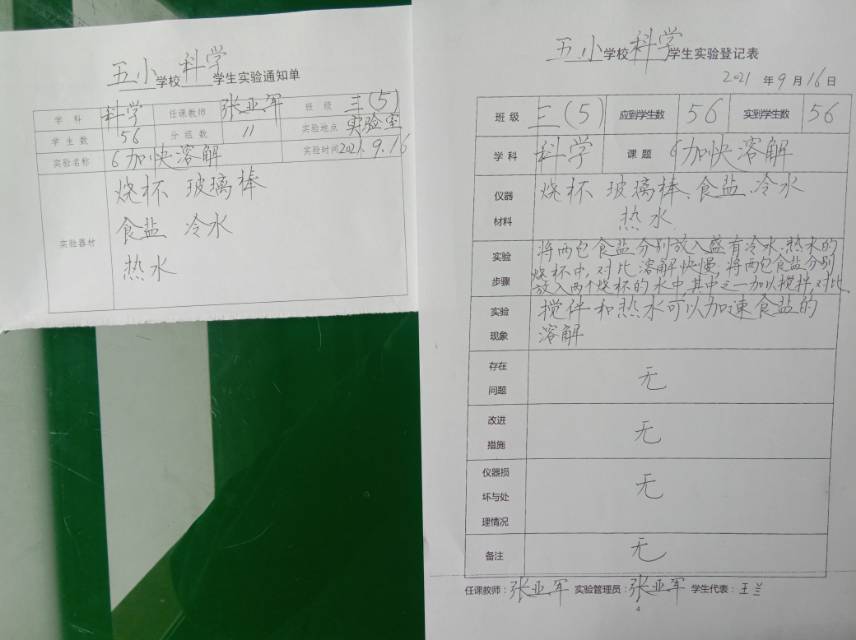 五小学校科学学生实验通知单
学科 科学 任课教师 张亚军 班级 三(5)
学生数 56 分组数 11 实验地点 实验室
实验名称 6加快溶解 实验时间 2021.9.16
实验器材
烧杯 玻璃棒
食盐 冷水
热水
五小学校科学学生实验登记表
2021年9月16日
班级 三(5) 应到学生数 56 实到学生数 56
学科 科学 课题 6加快溶解
仪器材料
烧杯 玻璃棒、食盐、冷水
热水
实验步骤
将两包食盐分别放入盛有冷水、热水的
烧杯中,对比溶解快慢,将两包食盐分别
放入两个烧杯的水中,其中之一加以搅拌,对比
实验现象
搅伴和热水可以加速食盐的
溶解
存在问题 无
改进措施 无
仪器损坏与处理情况 无
备注 无
任课教师:张亚军 实验管理员:张亚军 学生代表:王兰
4